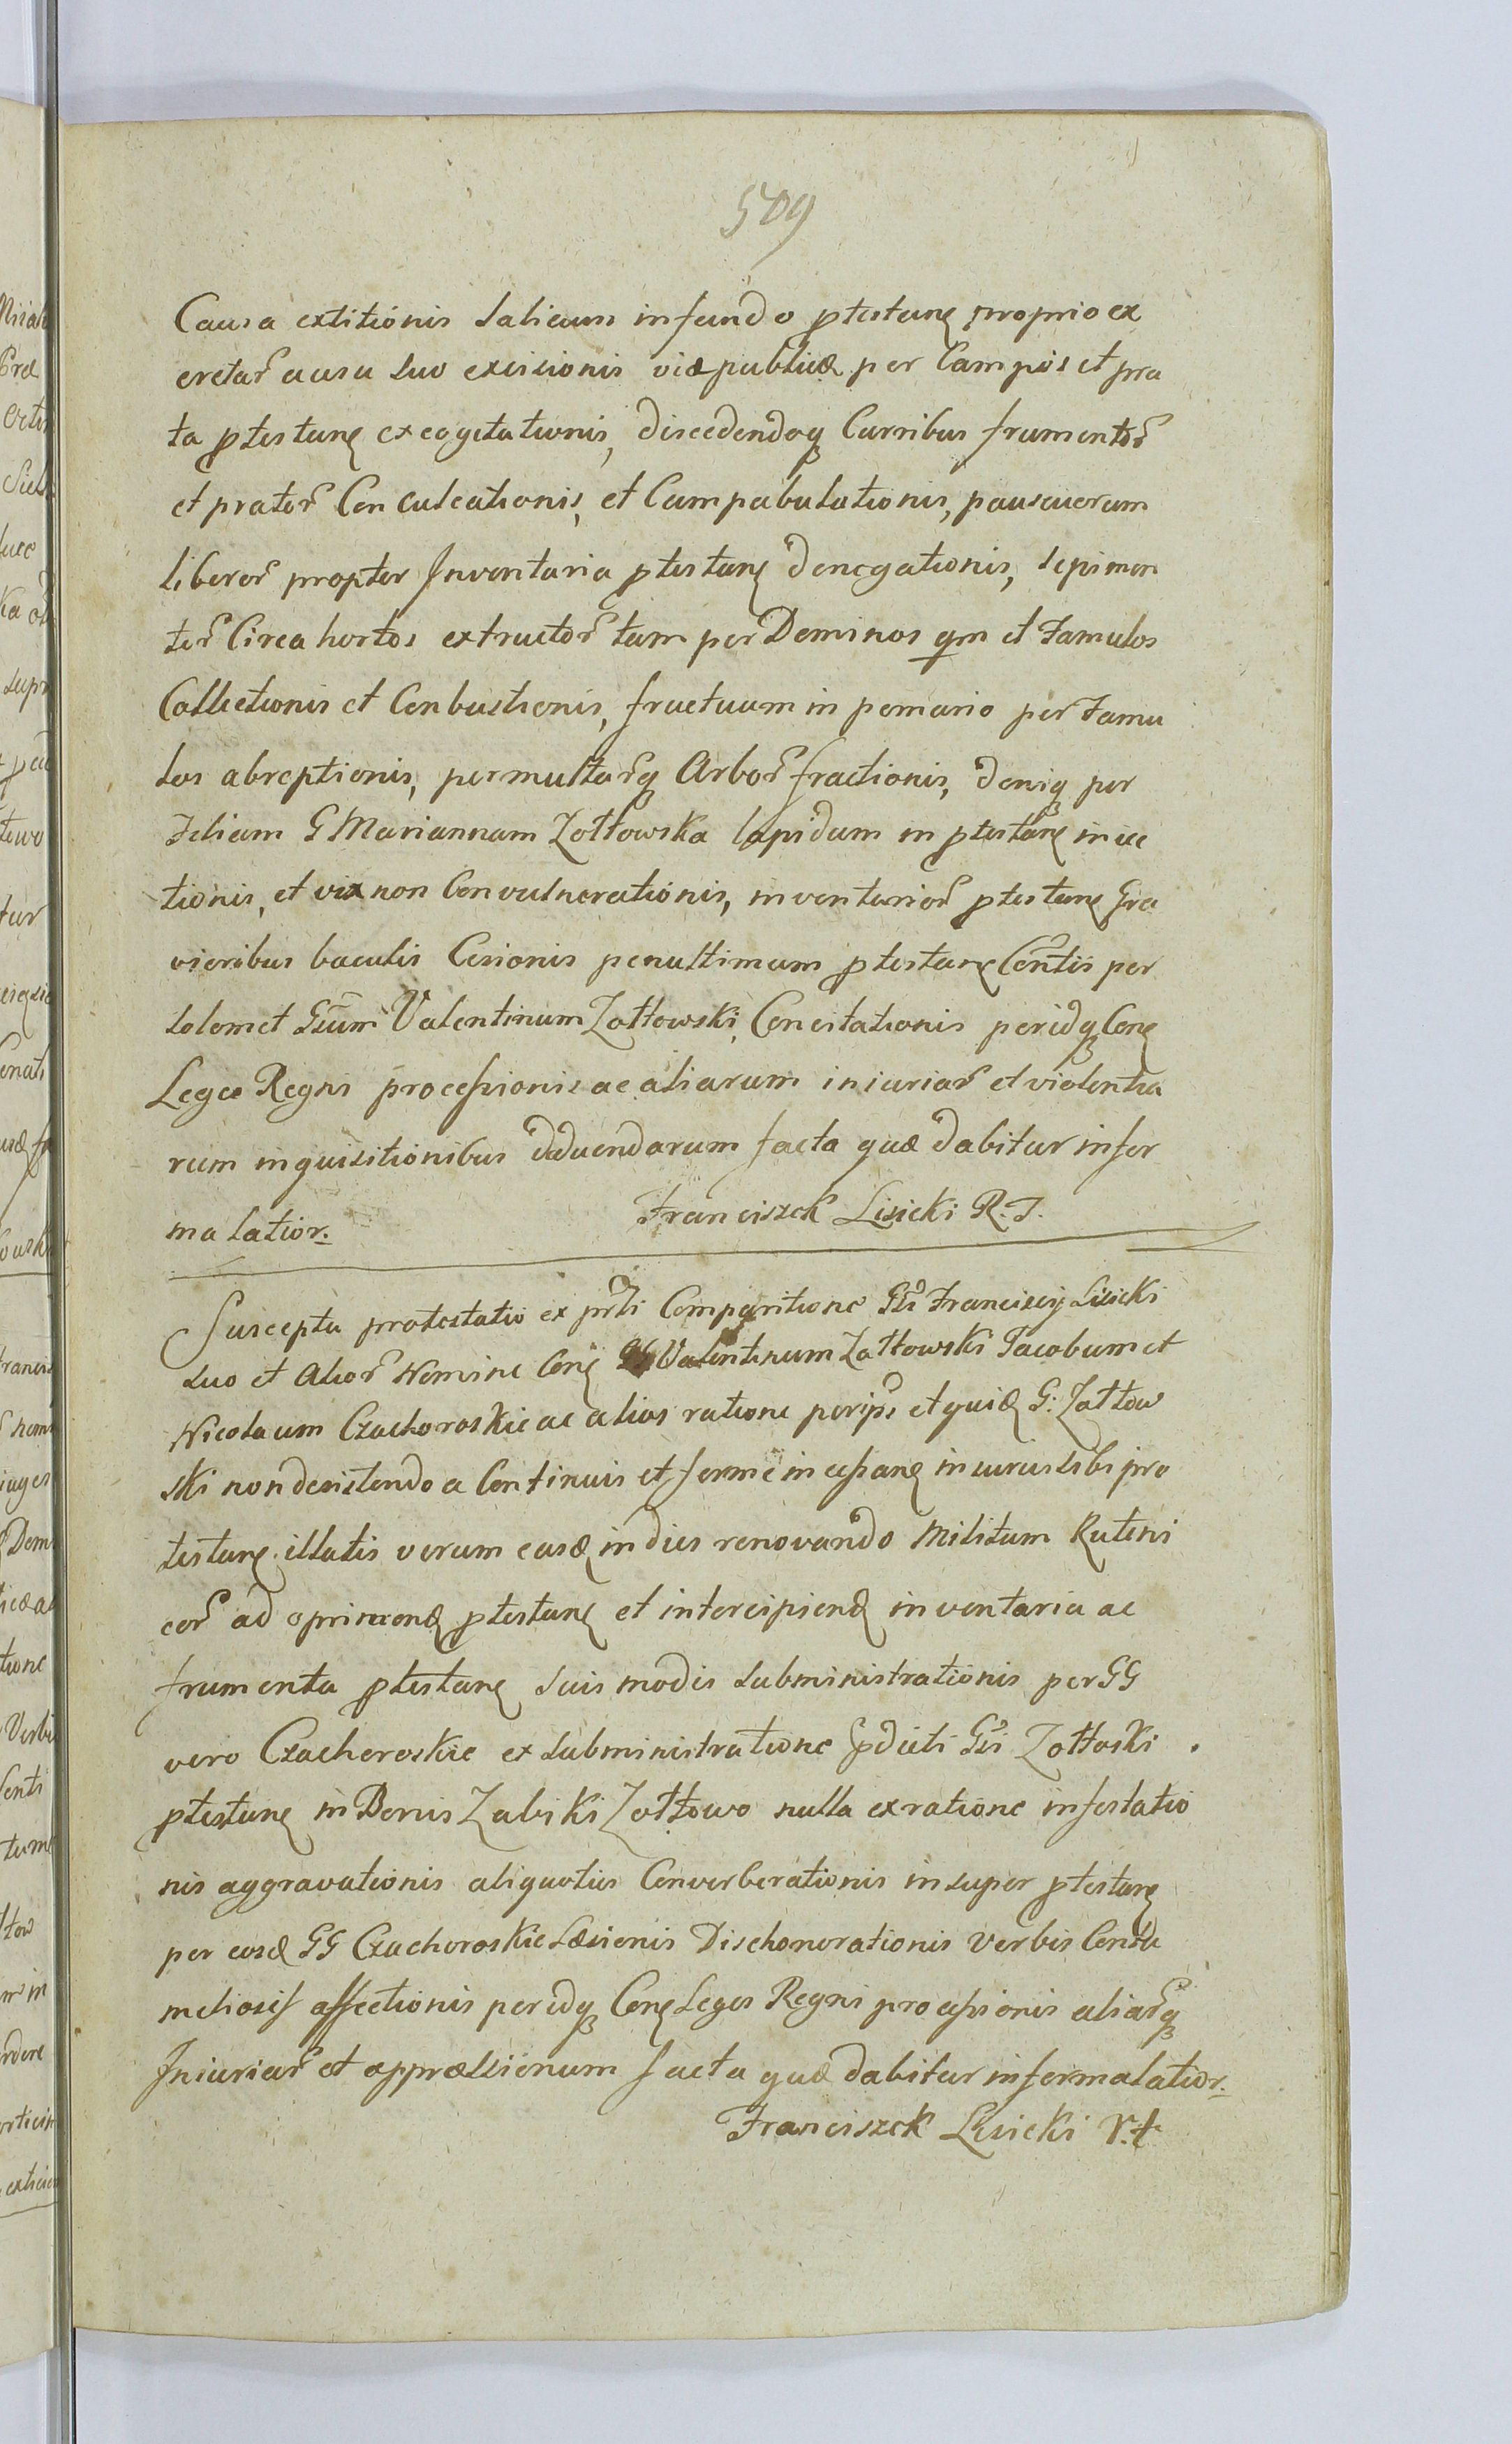 509
Causa extitionis salicum in fundo ptestanę proprio ex
cretar ausu suo excisionis viæ publicæ per Campos et pra
ta ptestanę excogitationis, discedendoq Curribus frumentor
et prator Conculcationis, et Campabulationis, pascuorum
liberor propter Inventaria ptestanę denegationis, sepimen
tor Circa hortos extructor tam per Dominos qm et Famulos
Collectionis et Conbustionis, fructuum in pomario per Famu
los abreptionis, permultarq Arbor fractionis, deniq per
Filiam G Mariannam Zołtowska lapidum in ptestanę iniec
tionis, et vix non Convulnerationis, inventarior ptestanę gra
vioribus baculis Cesionis penultimum ptestanę Contis per
solemet Gsum Valentinum Zołtowski, Concitationis peridq Conę
Leges Regni processionis ac aliarum iniuriar et violentia
rum inquisitionibus deducendarum facta quæ dabitur infor
ma latior.
Franciszek Lisicki R. T.
Suscepta protestatio ex prsti Comparitione Gsi Francisci Lisicki
suo et Alior Nomine Conę GG Valentinum Zołtowski Jacobum et
Nicolaum Czachoroskie ac alios ratione peripsi et quidę G: Zołtow
ski non desistendo a Continuis et ferme incessanę iniuriis sibi pro
testanę illatis verum easdę in dies renovando Militum Ruteni
cor ad oprimendę ptestanę et intercipiendę inventaria ac
frumenta ptestanę suis modis subministrationis per GG
vero Czachoroskie ex subministratione pdicti Gsi Zołtoski
ptestanę in Bonis Zabiki Zołtowo nulla ex ratione infestatio
nis aggravationis aliquoties Converberationis insuper ptestanę
per eosdę GG Czachoroskie Læsionis Dischonorationis verbis Contu
meliosis affectionis peridq Conę Leges Regni processionis aliarq
Iniuriar et oppræssionum facta quæ dabitur in forma latior.
Franciszek Lisicki r. t